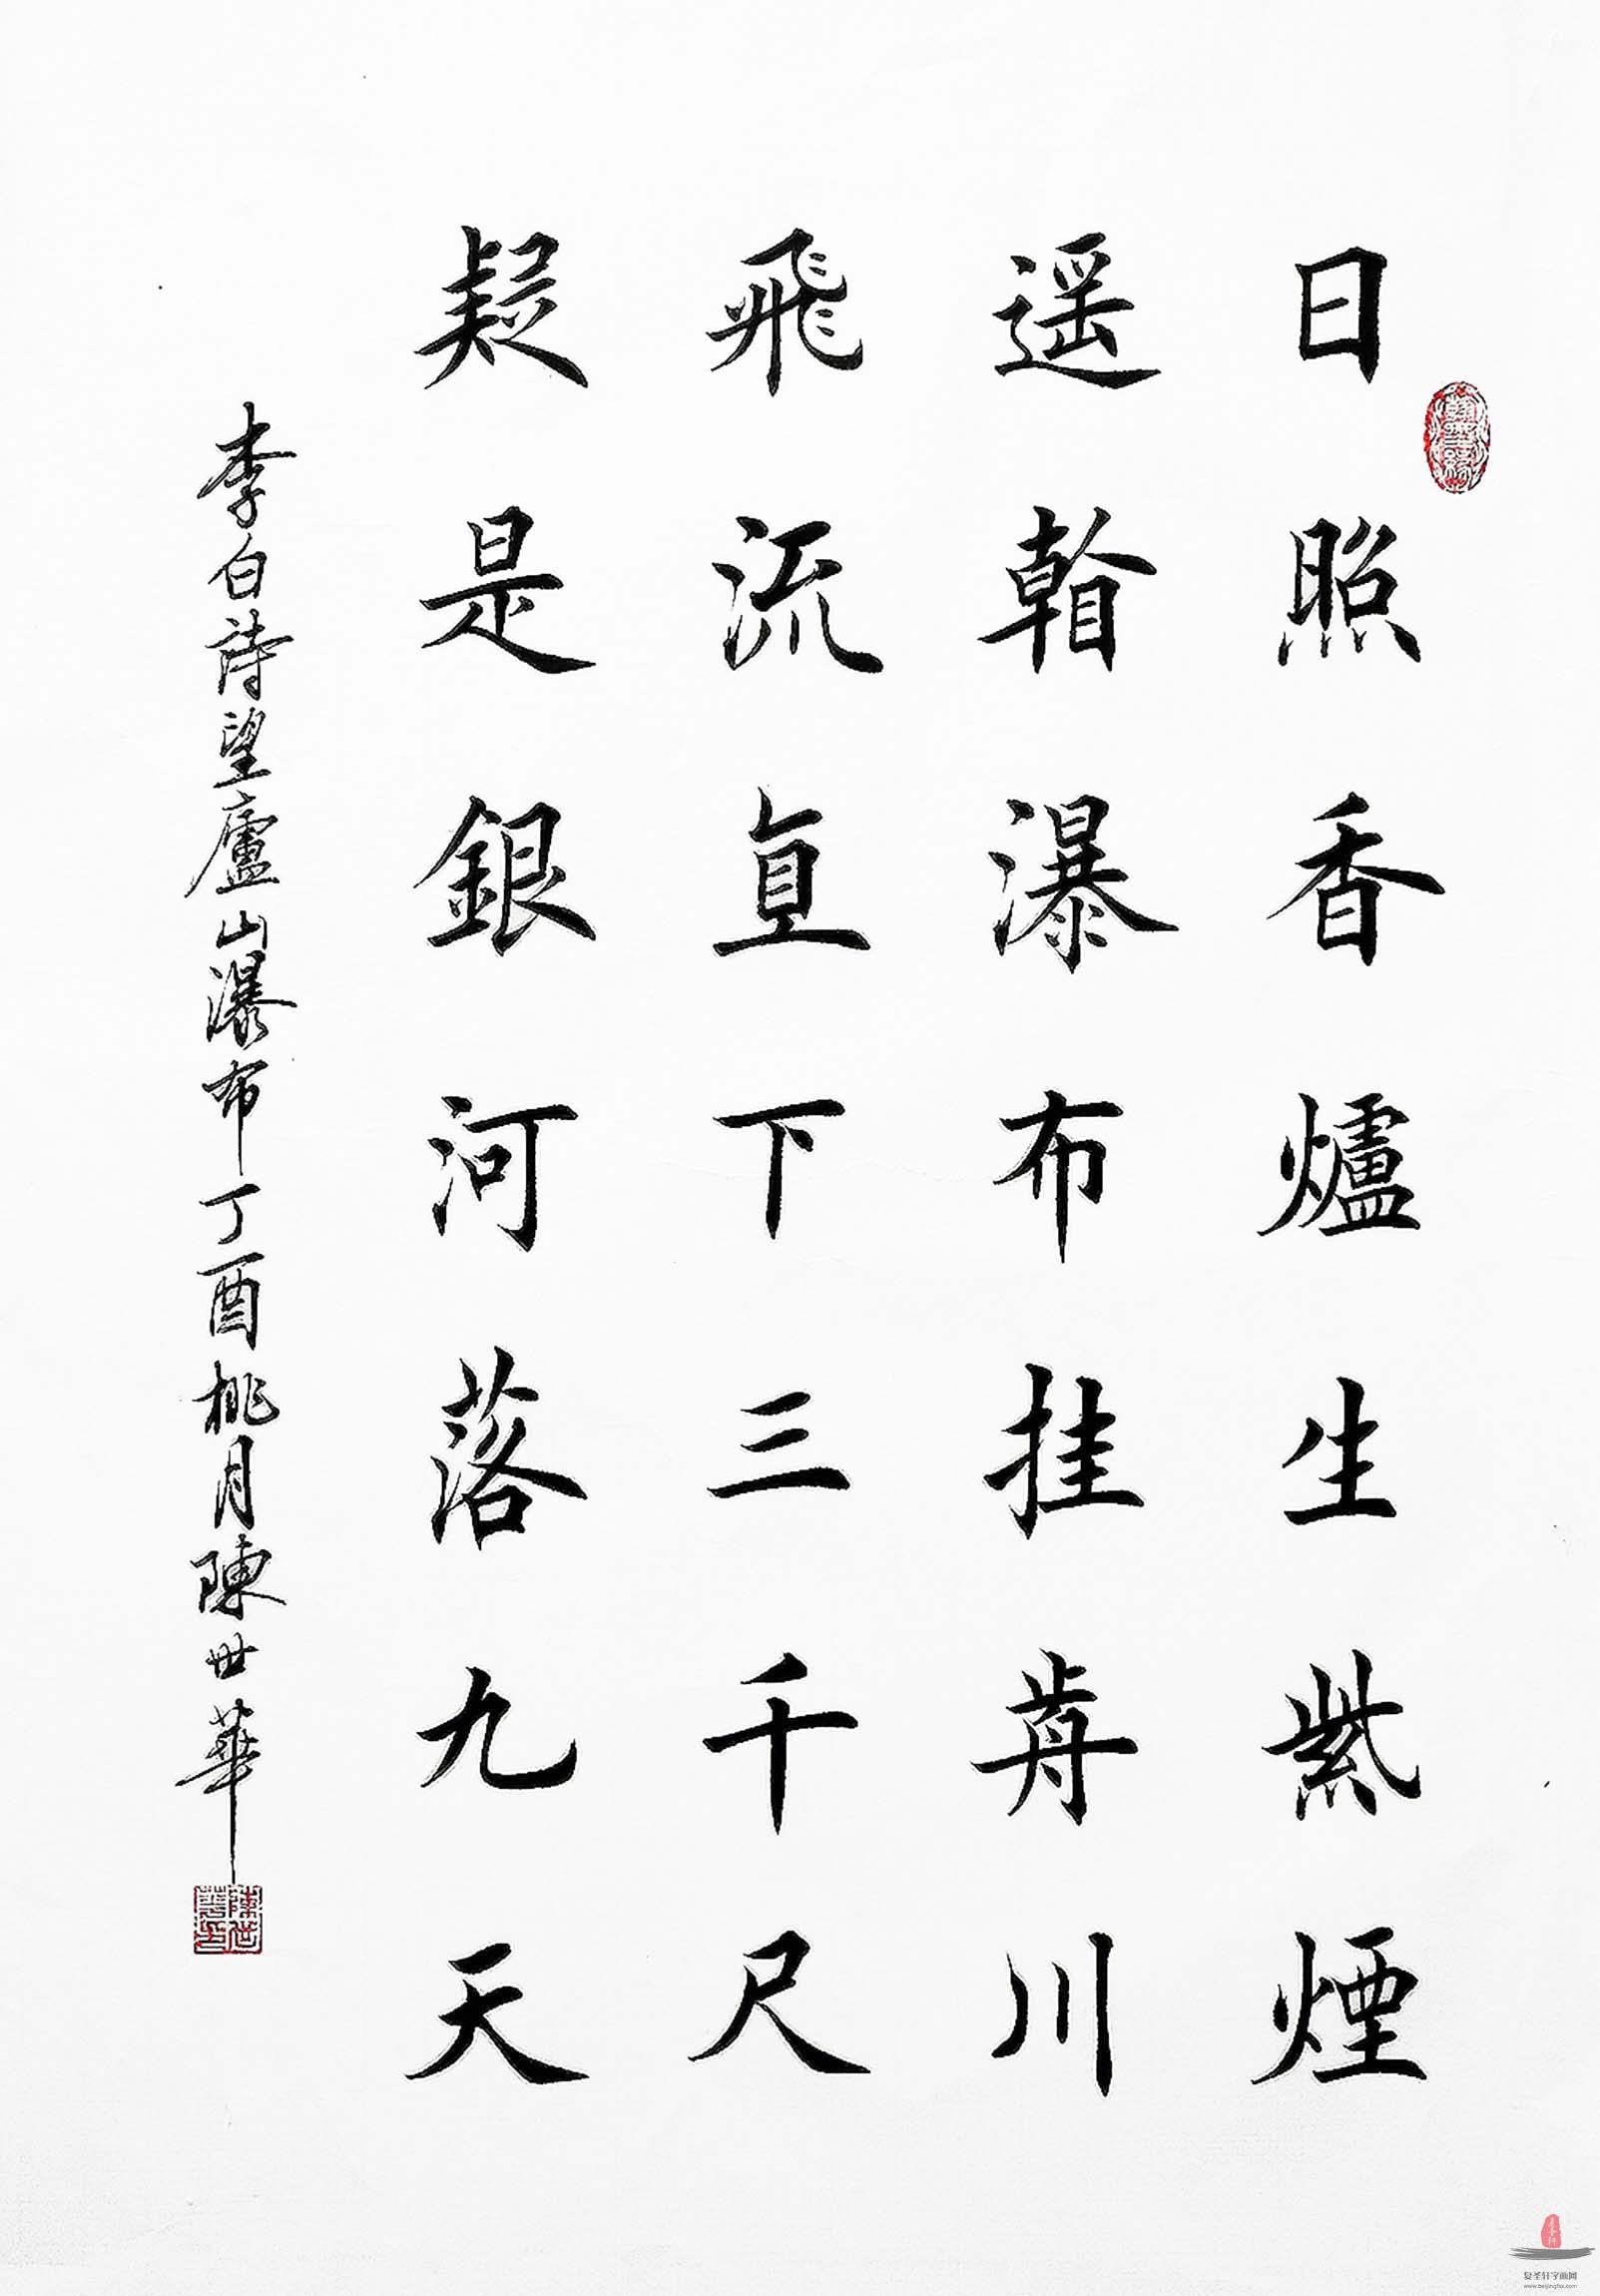 日照香爐生紫煙
遥看瀑布挂前川
飛流直下三千尺
疑是銀河落九天
李白詩望廬山瀑布丁酉桃月陳世華
复圣轩字画网